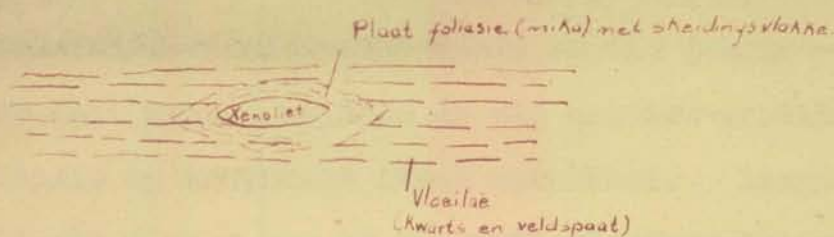 Plaat foliasie (mika) met skeidingsvlakke.
Xenoliet
Vloeilae
(Kwarts en veldspaat)